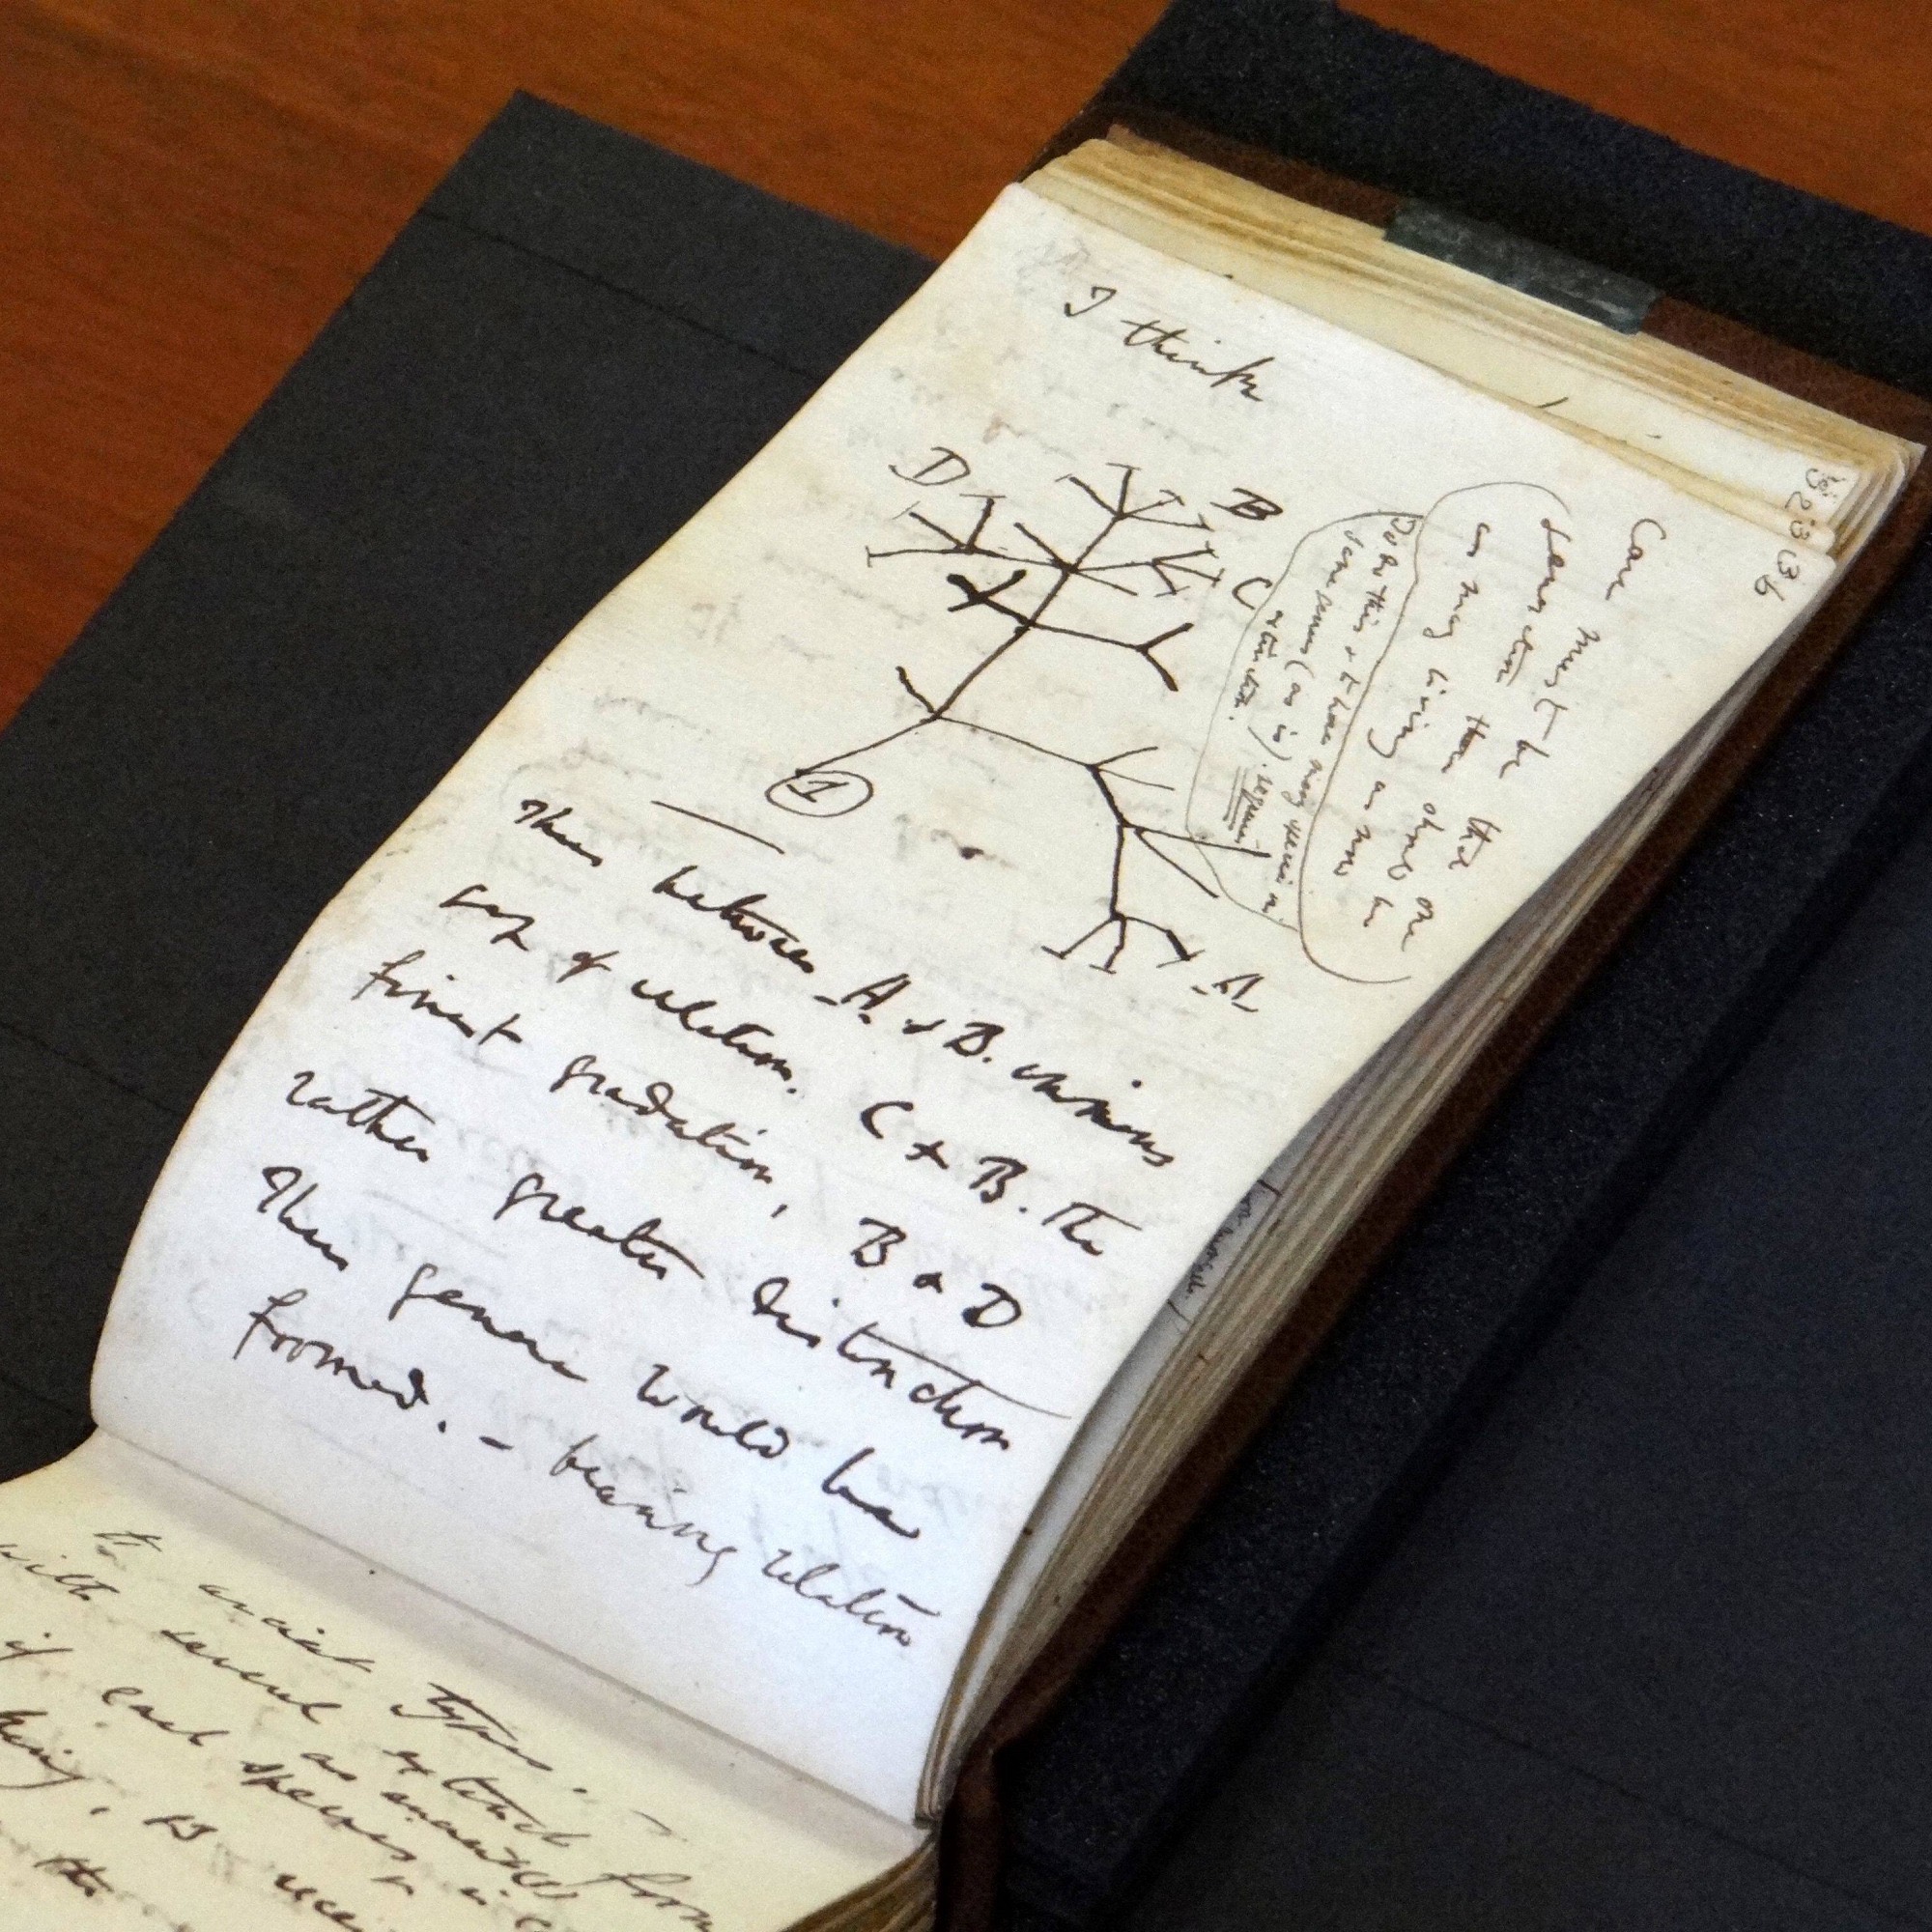 I think
D
B
C
A
1
36
Case must be that
one generation then should be
as many living as now
To do this & to have many species in
same genus (as is). requires
extinction.
Thus between A. & B. immens
gap of relation. C & B. The
finest gradation, B & D
rather greater distinction
Thus genera would be
formed. — bearing relation
to ancient types. —
with several extinct forms
if each species
is
the